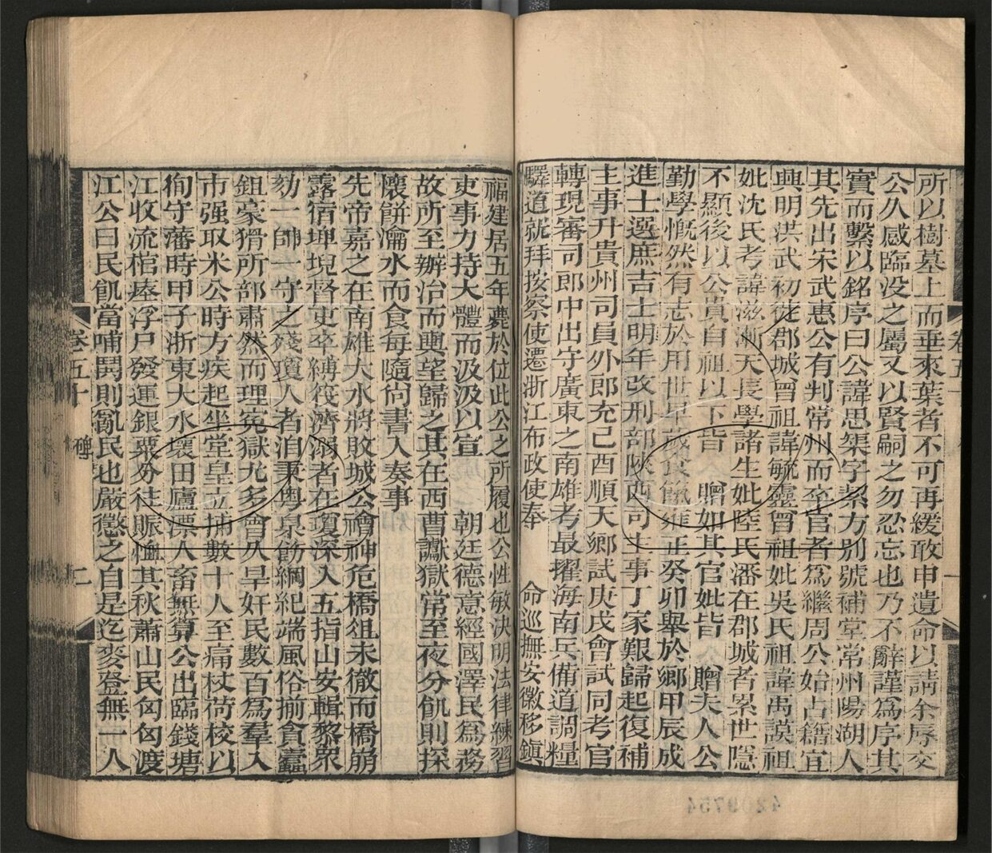 所以樹墓上而垂來葉者不可再緩敢申遺命以請余辱交
公久感臨没之屬又以賢嗣之勿忍忘也乃不辭謹為序其
實而繫以銘序曰公諱思榘字絜方別號補堂常州陽湖人
其先出宋武惠公有判常州而至官者為繼周公始占籍宜
興明洪武初徙郡城曾祖諱毓靈曾祖妣吳氏祖諱禹謨祖
妣沈氏考諱滋漸天長學諸生妣陸氏潘在郡城者累世隱
不顯後以公貴自祖以下皆 贈如其官妣皆 贈夫人公
勤學慨然有志於用世早歲食餼雍正癸卯舉於鄉甲辰成
進士選庶吉士明年改刑部陝西司主事丁家艱歸起復補
主事升貴州司員外郎充己酉順天鄉試庚戌會試同考官
轉現審司郎中出守廣東之南雄考最擢海南兵備道調糧
驛道就拜按察使遷浙江布政使奉 命巡撫安徽移鎮
福建居五年薨於位此公之所履也公性敏決明法律練習
吏事力持大體而汲汲以宣 朝廷德意經國澤民為務
故所至辦治而輿望歸之其在西曹讞獄常至夜分飢則探
懷餅瀹水而食每隨尚書入奏事
先帝嘉之在南雄大水將敗城公禬神危橋俎未徹而橋崩
露宿埤堄督吏卒縛筏濟溺者在瓊深入五指山安輯黎眾
劾一帥一守之殘瓊人者洎秉粤臬飭綱紀端風俗揃貪蠹
鉏豪猾所部肅然而理冤獄尤多會久旱奸民數百為羣入
市强取米公時方疾起坐堂皇立捕數十人至痛杖荷校以
徇守藩時甲子浙東大水壞田廬漂人畜無算公出臨錢塘
江收流棺瘞浮尸發運銀粟分往賑恤其秋蕭山民匈匈渡
江公曰民飢當哺鬨則亂民也嚴懲之自是迄麥登無一人
卷五十 碑 二
卷五十 一
4209754